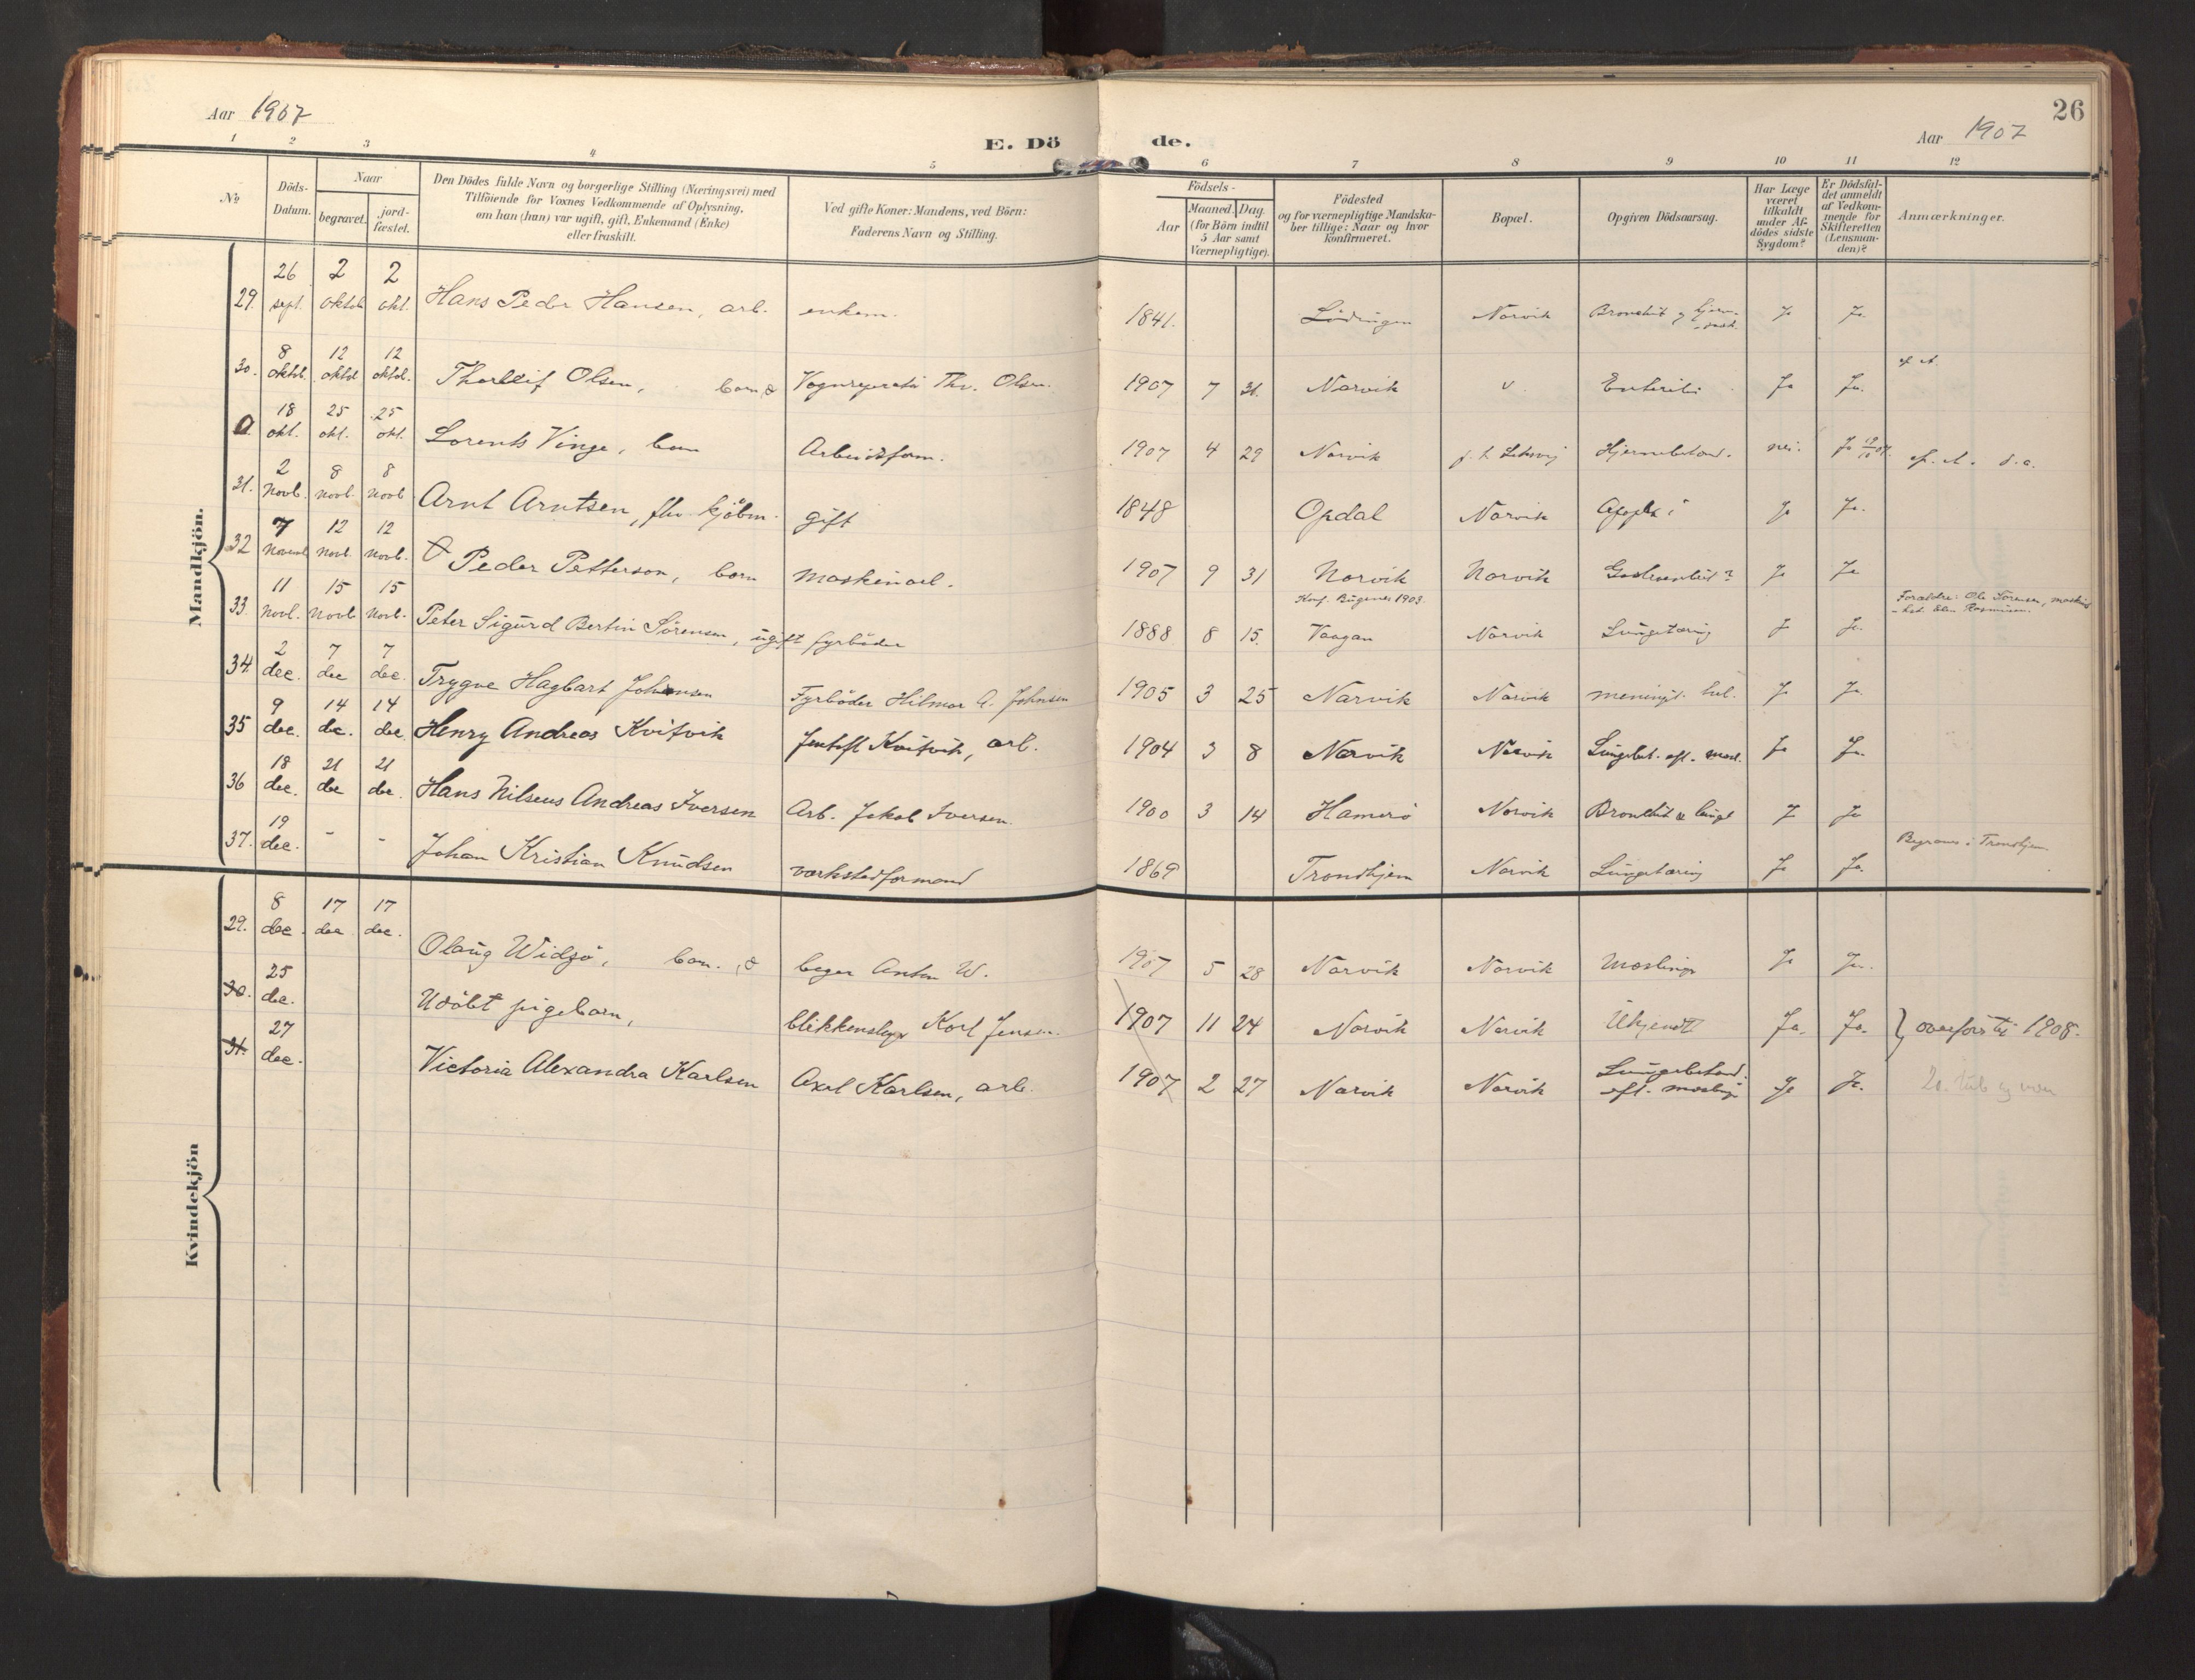 Aar 1907
E. Dö de.
Aar 1907
26
1 2 3 4 5 6 7 8 9 10 11 12
No
Döds-
Datum.
Naar
begravet.
jord-
fæstet.
Den Dödes fulde Navn og borgerlige Stilling (Næringsvei) med
Tilföiende for Voxnes Vedkommende af Oplysning,
om han (hun) var ugift, gift, Enkemand (Enke)
eller fraskilt.
Ved gifte Koner: Mandens, ved Börn:
Faderens Navn og Stilling.
Födsels-
Aar
Maaned. Dag.
(for Börn indtil
5 Aar samt
Værnepligtige).
Födested
og for værnepligtige Mandska-
ber tillige: Naar og hvor
konfirmeret.
Bopæl.
Opgiven Dödsaarsag.
Har Læge
været
tilkaldt
under Af-
dödes sidste
Sygdom?
Er Dödsfal-
det anmeldt
af Vedkom-
mende for
Skifteretten
(Lensman-
den)?
Anmærkninger.
Mandkjön.
29. 26 sept. 2 oktob 2 okt. Hans Peder Hansen, arb. enkem. 1841. Lödingen Narvik Bronchit og Ja Ja.
30. 8 oktob. 12 oktob 12 oktob. Thorleif Olsen, barn Thv. Olsen. 1907 7 31. Narvik Enteritis Ja Ja.
0. 18 okt. 25 okt. 25 okt. Lorents Vinge, barn Arbeidsform. 1907 4 29 Narvik Hjernebetænd. nei. Ja
31. 2 Novb. 8 Novb. 8 Novb Arnt Arntsen, fhv. kjöbm. gift 1848 Opdal Narvik Apoplexi Ja Ja.
32 7 Novemb 12 Novb. 12 Novb. Peder Petterson, barn maskinarb. 1907 9 31 Narvik Narvik Ja Ja
33. 11 Novb. 15 Novb 15 Novb. Peter Sigurd Bertin Sörensen, ugift fyrböder 1888 8 15. Vaagan Narvik Lungetæring J Ja.
Konf. Bugenes 1903.
Forældre: Ole Sörensen, maskinist
Rasmussen.
34. 2 dec. 7 dec 7 dec. Trygve Hagbart Johansen Fyrböder Hilmar A. Johnsen 1905 3 25 Narvik Narvik meningit. tub. Ja Ja.
35 9 dec. 14 dec. 14 dec. Henry Andreas Kvitvik Jentoft Kvitvik, arb. 1904 3 8 Narvik Narvik Lungebet. eft. mæsl. Ja Ja.
36 18 dec. 21 dec 21 dec. Hans Nilseus Andreas Iversen Arb. Jakob Iversen. 1900 3 14 Hamarö Narvik Bronchit & lungebet J Ja
37. 19 dec. - - Johan Kristian Knudsen værkstedformand 1869 Trondhjem Narvik Lungetæring Ja Ja. Begraves i Trondhjem
Kvindekjön
29. 8 dec. 17 dec 17 dec. Olaug Widsjö, barn. Anton W. 1907 5 28 Narvik Narvik Mæslinger Ja Ja.
30. 25 dec. Udöbt pigebarn, blikkenslager Karl Jensen. 1907 11 24 Narvik Narvik Ukjendt Ja. Ja. } overfört til 1908.
31. 27 dec. Victoria Alexandra Karlsen Axel Karlsen, arb. 1907 2 27 Narvik Narvik Lungebetænd. eft. mæslinger Ja Ja.